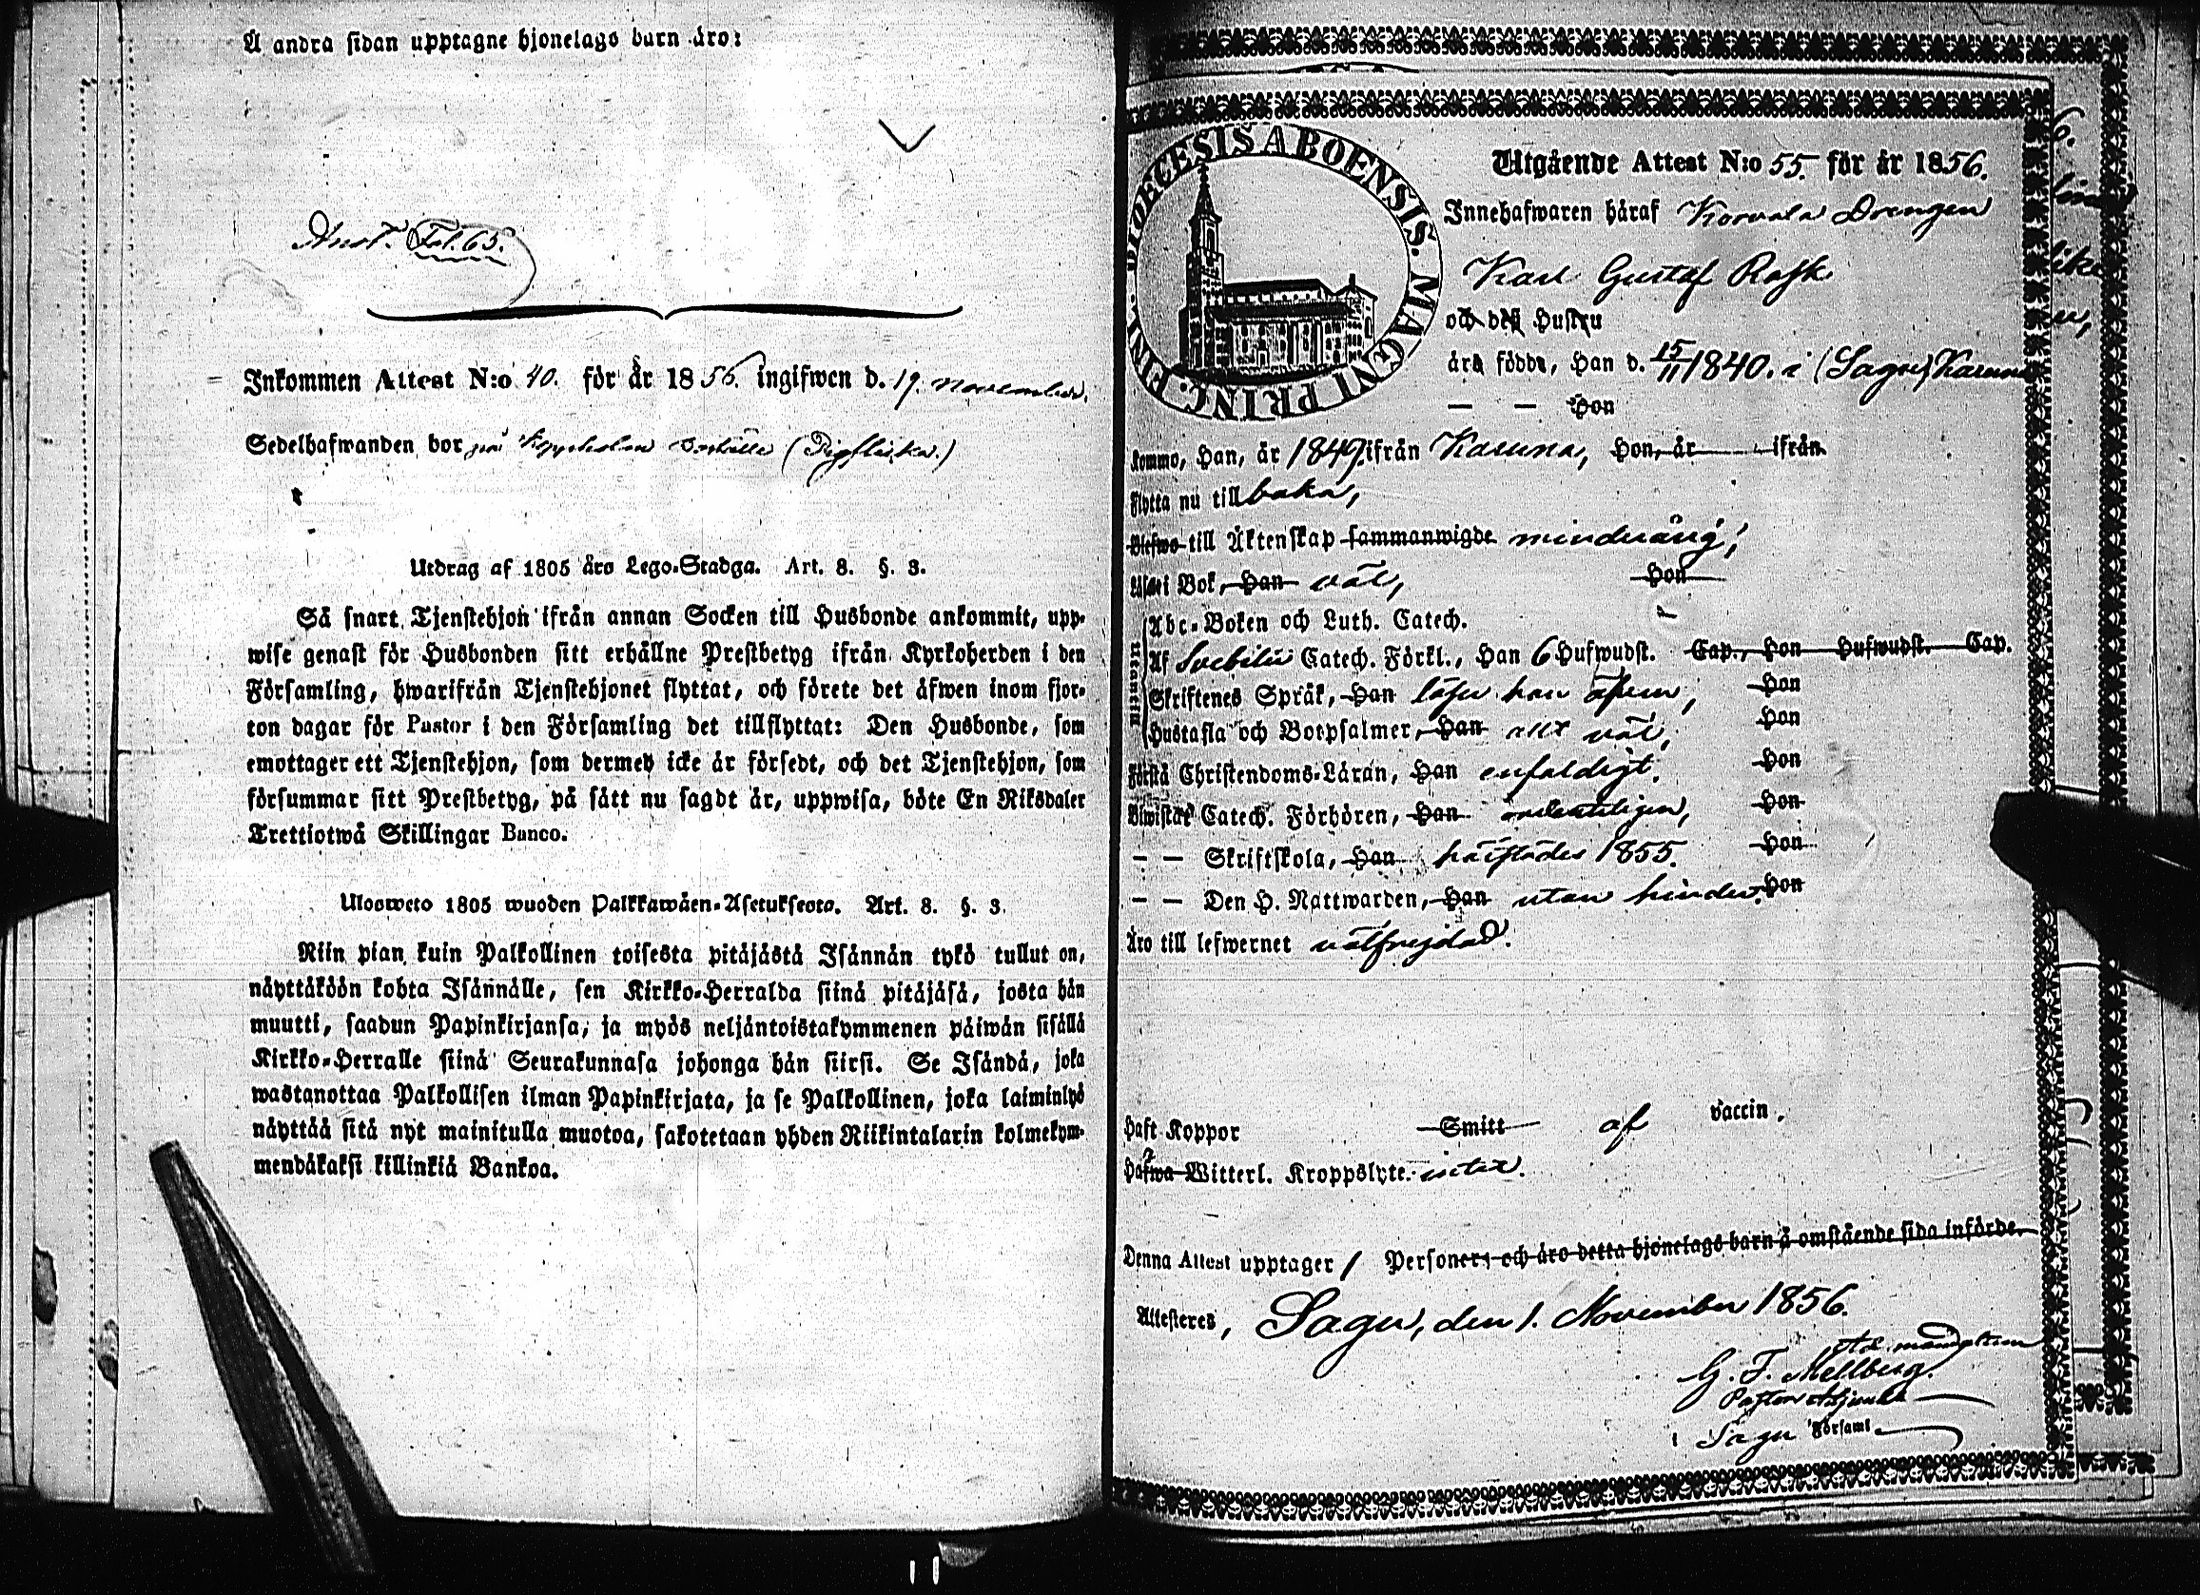 Å andra sidan upptagne hjonelags barn äro:
Anot. Fol. 65.
Inkommen Attest N:o 40. för år 1856. ingifwen d. 19. november.
Sedelhafwanden bor på
Utdrag af 1805 års Lego-Stadga. Art. 8. §. 3.
Så snart Tjenstehjon ifrån annan Socken till Husbonde ankommit, upp-
wise genast för Husbonden sitt erhållne Prestbetyg ifrån Kyrkoherden i den
Församling, hwarifrån Tjenstehjonet flyttat, och förete det äfwen inom fjor-
ton dagar för Pastor i den Församling det tillflyttat: Den Husbonde, som
emottager ett Tjenstehjon, som dermed icke är försedt, och det Tjenstehjon, som
försummar sitt Prestbetyg, på sätt nu sagdt är, uppwisa, böte En Riksdaler
Trettiotwå Skillingar Banco.
Ulosweto 1805 wuoden Palkkawäen-Asetuksesta. Art. 8. §. 3.
Niin pian kuin Palkollinen toisesta pitäjästä Isännän tykö tullut on,
näyttäköön kohta Isännälle, sen Kirkko-Herralda siinä pitäjäsä, josta hän
muutti, saadun Papinkirjansa, ja myös neljäntoistakymmenen päiwän sisällä
Kirkko-Herralle siinä Seurakunnasa johonga hän siirsi. Se Isändä, joka
wastanottaa Palkollisen ilman Papinkirjata, ja se Palkollinen, joka laiminlyö
näyttää sitä nyt mainitulla muotoa, sakotetaan yhden Riikintalarin kolmekym-
mendäkaksi killinkiä Bankoa.
DIOECESIS ABOENSIS. MAGNI PRINC. FINL.
Utgående Attest N:o 55. för år 1856.
Innehafwaren häraf Korvala Drengen
Karl Gustaf Rask
och des Hustru
äro födde, Han d. 15/11 1840. i (Sagu) Karuna
— — Hon
kommo, Han, år 1849. ifrån Karuna, Hon, år ifrån
Flytta nu tillbaka,
Blefwo till Äktenskap sammanwigde minderårig;
Läsa i Bok, Han väl, Hon
Utantill
Abc-Boken och Luth. Catech.
Af Svebilii Catech. Förkl., Han 6 Hufwudst. Cap., Hon Hufwudst. Cap.
Skriftenes Språk, Han läser han äfven, Hon
Hustafla och Botpsalmer, Han allt väl, Hon
Förstå Christendoms-Läran, Han enfaldigt. Hon
Biwistat Catech. Förhören, Han ordentligen, Hon
— — Skriftskola, Han härstädes 1855. Hon
— — Den H. Nattwarden, Han utan hinder. Hon
Äro till lefwernet välfrejdad.
Haft Koppor Smitt af Vaccin.
Hafwa Witterl. Kroppslyte intet.
Denna Attest upptager 1 Personer, och äro detta hjonelags barn å omstående sida införde.
Attesteres, Sagu, den 1. November 1856.
Ad mandatum
G. F. Mellberg.
Pastors Adjunkt
i Sagu Församl.